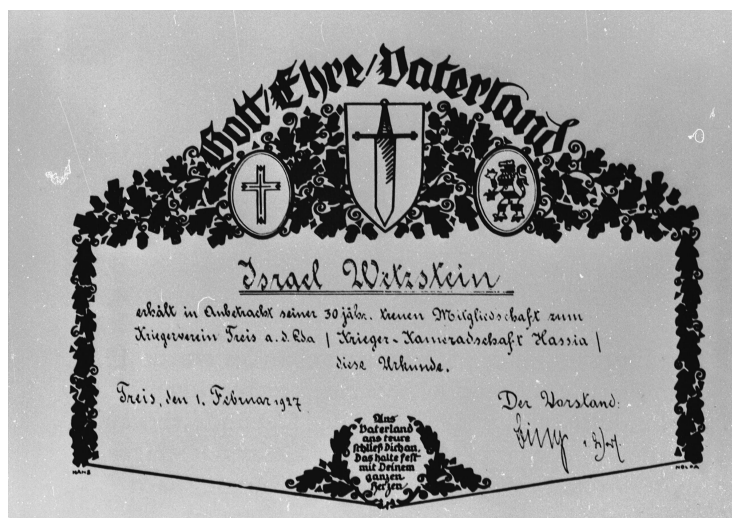 Gott/Ehre/Vaterland
Israel Wetzstein
erhält in Anbetracht seiner 30 jähr. treuen Mitgliedschaft zum
Kriegerverein Treis a. d. Lda / Krieger-Kameradschaft Hassia /
diese Urkunde.
Treis, den 1. Februar 1927
Der Vorstand:
Ans
Vaterland
ans teure
schließ Dich an,
Das halte fest
mit Deinem
ganzen
Herzen
HANS